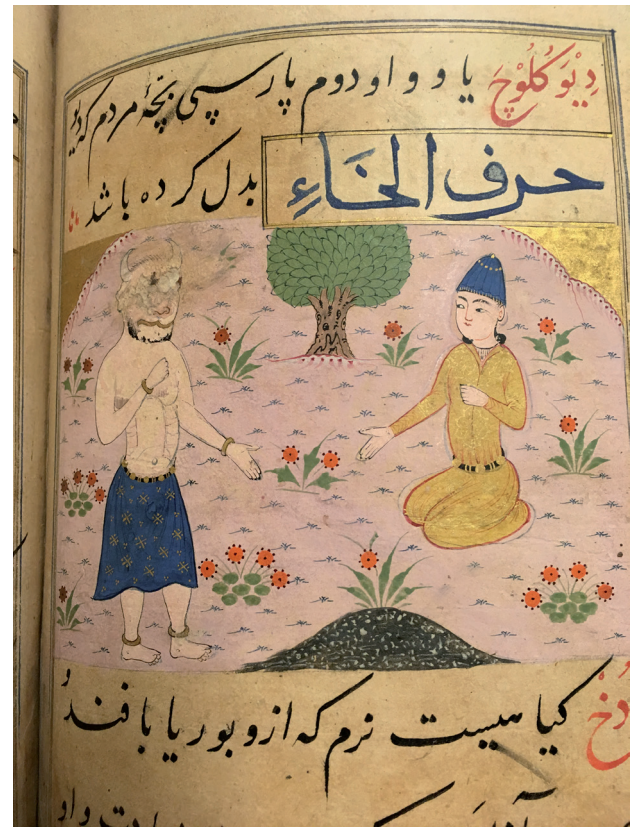 دِیْوَکُلُوْچَ یا و واو دوم پارسی بچّهٔ مردم که دیو
بدل کرده باشد
حرف الخَاءِ
دُخْ کیاهیست نرم که ازو بوریا بافند و